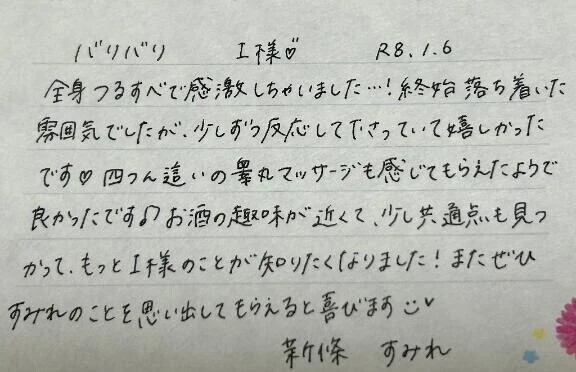 バリバリ I様♡ R8.1.6
全身つるすべで感激しちゃいました…!終始落ち着いた
雰囲気でしたが、少しずつ反応して下さっていて嬉しかった
です♡四つん這いの睾丸マッサージも感じてもらえたようで
良かったです♪お酒の趣味が近くて、少し共通点も見つ
かって、もっとI様のことが知りたくなりました!またぜひ
すみれのことを思い出してもらえると喜びます☺♥
新條 すみれ